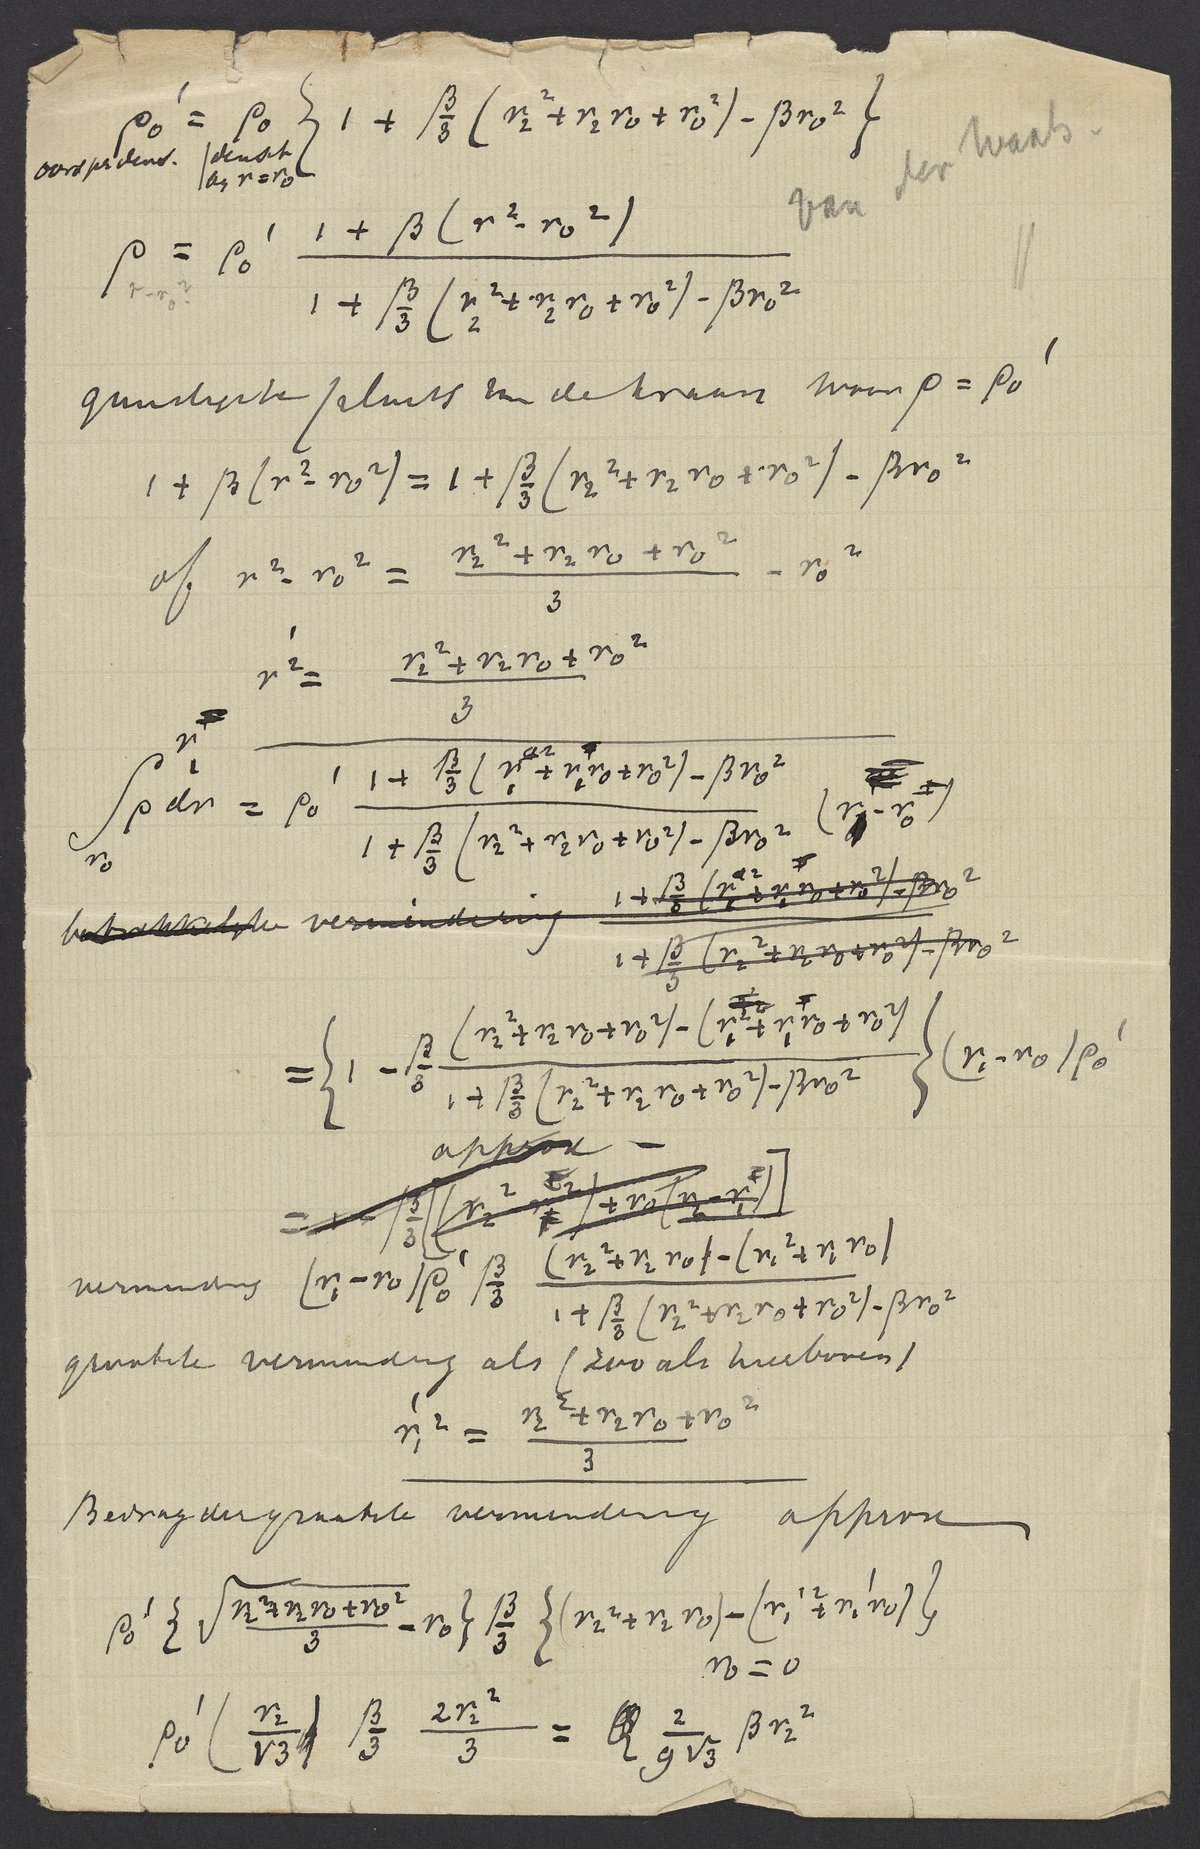 ρ₀' = ρ₀ { 1 + β/3 (r₂² + r₂r₀ + r₀²) - βr₀² }
van der Waals.
densit
bij r = r₀
ρ = ρ₀' (1 + β(r² - r₀²)) / (1 + β/3 (r₂² + r₂r₀ + r₀²) - βr₀²)
r - r₀²
gunstigste plaats in de kraan waar ρ = ρ₀'
1 + β(r² - r₀²) = 1 + β/3 (r₂² + r₂r₀ + r₀²) - βr₀²
of r² - r₀² = (r₂² + r₂r₀ + r₀²)/3 - r₀²
r'² = (r₂² + r₂r₀ + r₀²)/3
∫ρ dr = ρ₀' (1 + β/3 (r'² + r'r₀ + r₀²) - βr₀²) / (1 + β/3 (r₂² + r₂r₀ + r₀²) - βr₀²) (r' - r₀)
betrekkelijke vermindering (1 + β/3 (r'² + r'r₀ + r₀²) - βr₀²) / (1 + β/3 (r₂² + r₂r₀ + r₀²) - βr₀²)
= { 1 - β/3 ((r₂² + r₂r₀ + r₀²) - (r'² + r'r₀ + r₀²)) / (1 + β/3 (r₂² + r₂r₀ + r₀²) - βr₀²) } (r' - r₀) ρ₀'
approx -
vermindering (r' - r₀) ρ₀' β/3 ((r₂² + r₂r₀) - (r'² + r'r₀)) / (1 + β/3 (r₂² + r₂r₀ + r₀²) - βr₀²)
grootste vermindering als (zooals hierboven)
r'² = (r₂² + r₂r₀ + r₀²)/3
Bedrag der grootste vermindering approx
ρ₀' { √((r₂² + r₂r₀ + r₀²)/3) - r₀ } β/3 { (r₂² + r₂r₀) - (r'² + r'r₀) }
r₀ = 0
ρ₀' (r₂/√3) β/3 2r₂²/3 = 2/9√3 βr₂²